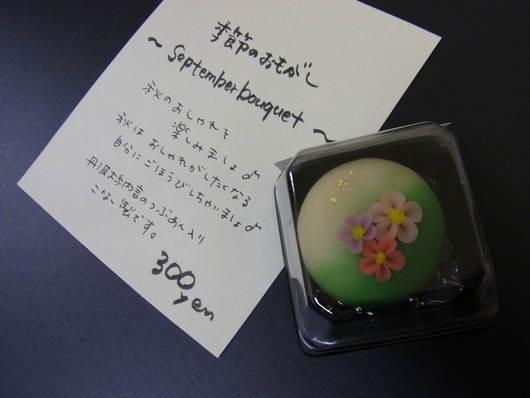 季節のおもがし
～ September bouquet ～
秋のおしゃれを
楽しみましょ♪
秋は おしゃれがしたくなる
自分に ごほうびしちゃいましょ♪
丹波大納言のつぶあん入り
こなし製です。
300
yen